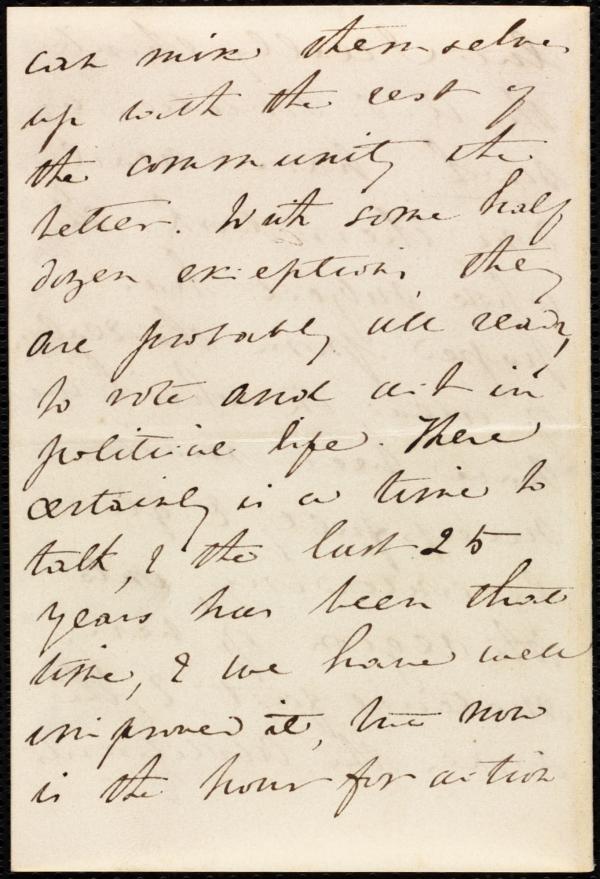 can mix themselves
up with the rest of
the community the
better. With some half
dozen exceptions they
are probably all ready
to vote and act in
political life. There
certainly is a time to
talk, & the last 25
years has been that
time, & we have well
improved it, but now
is the hour for action